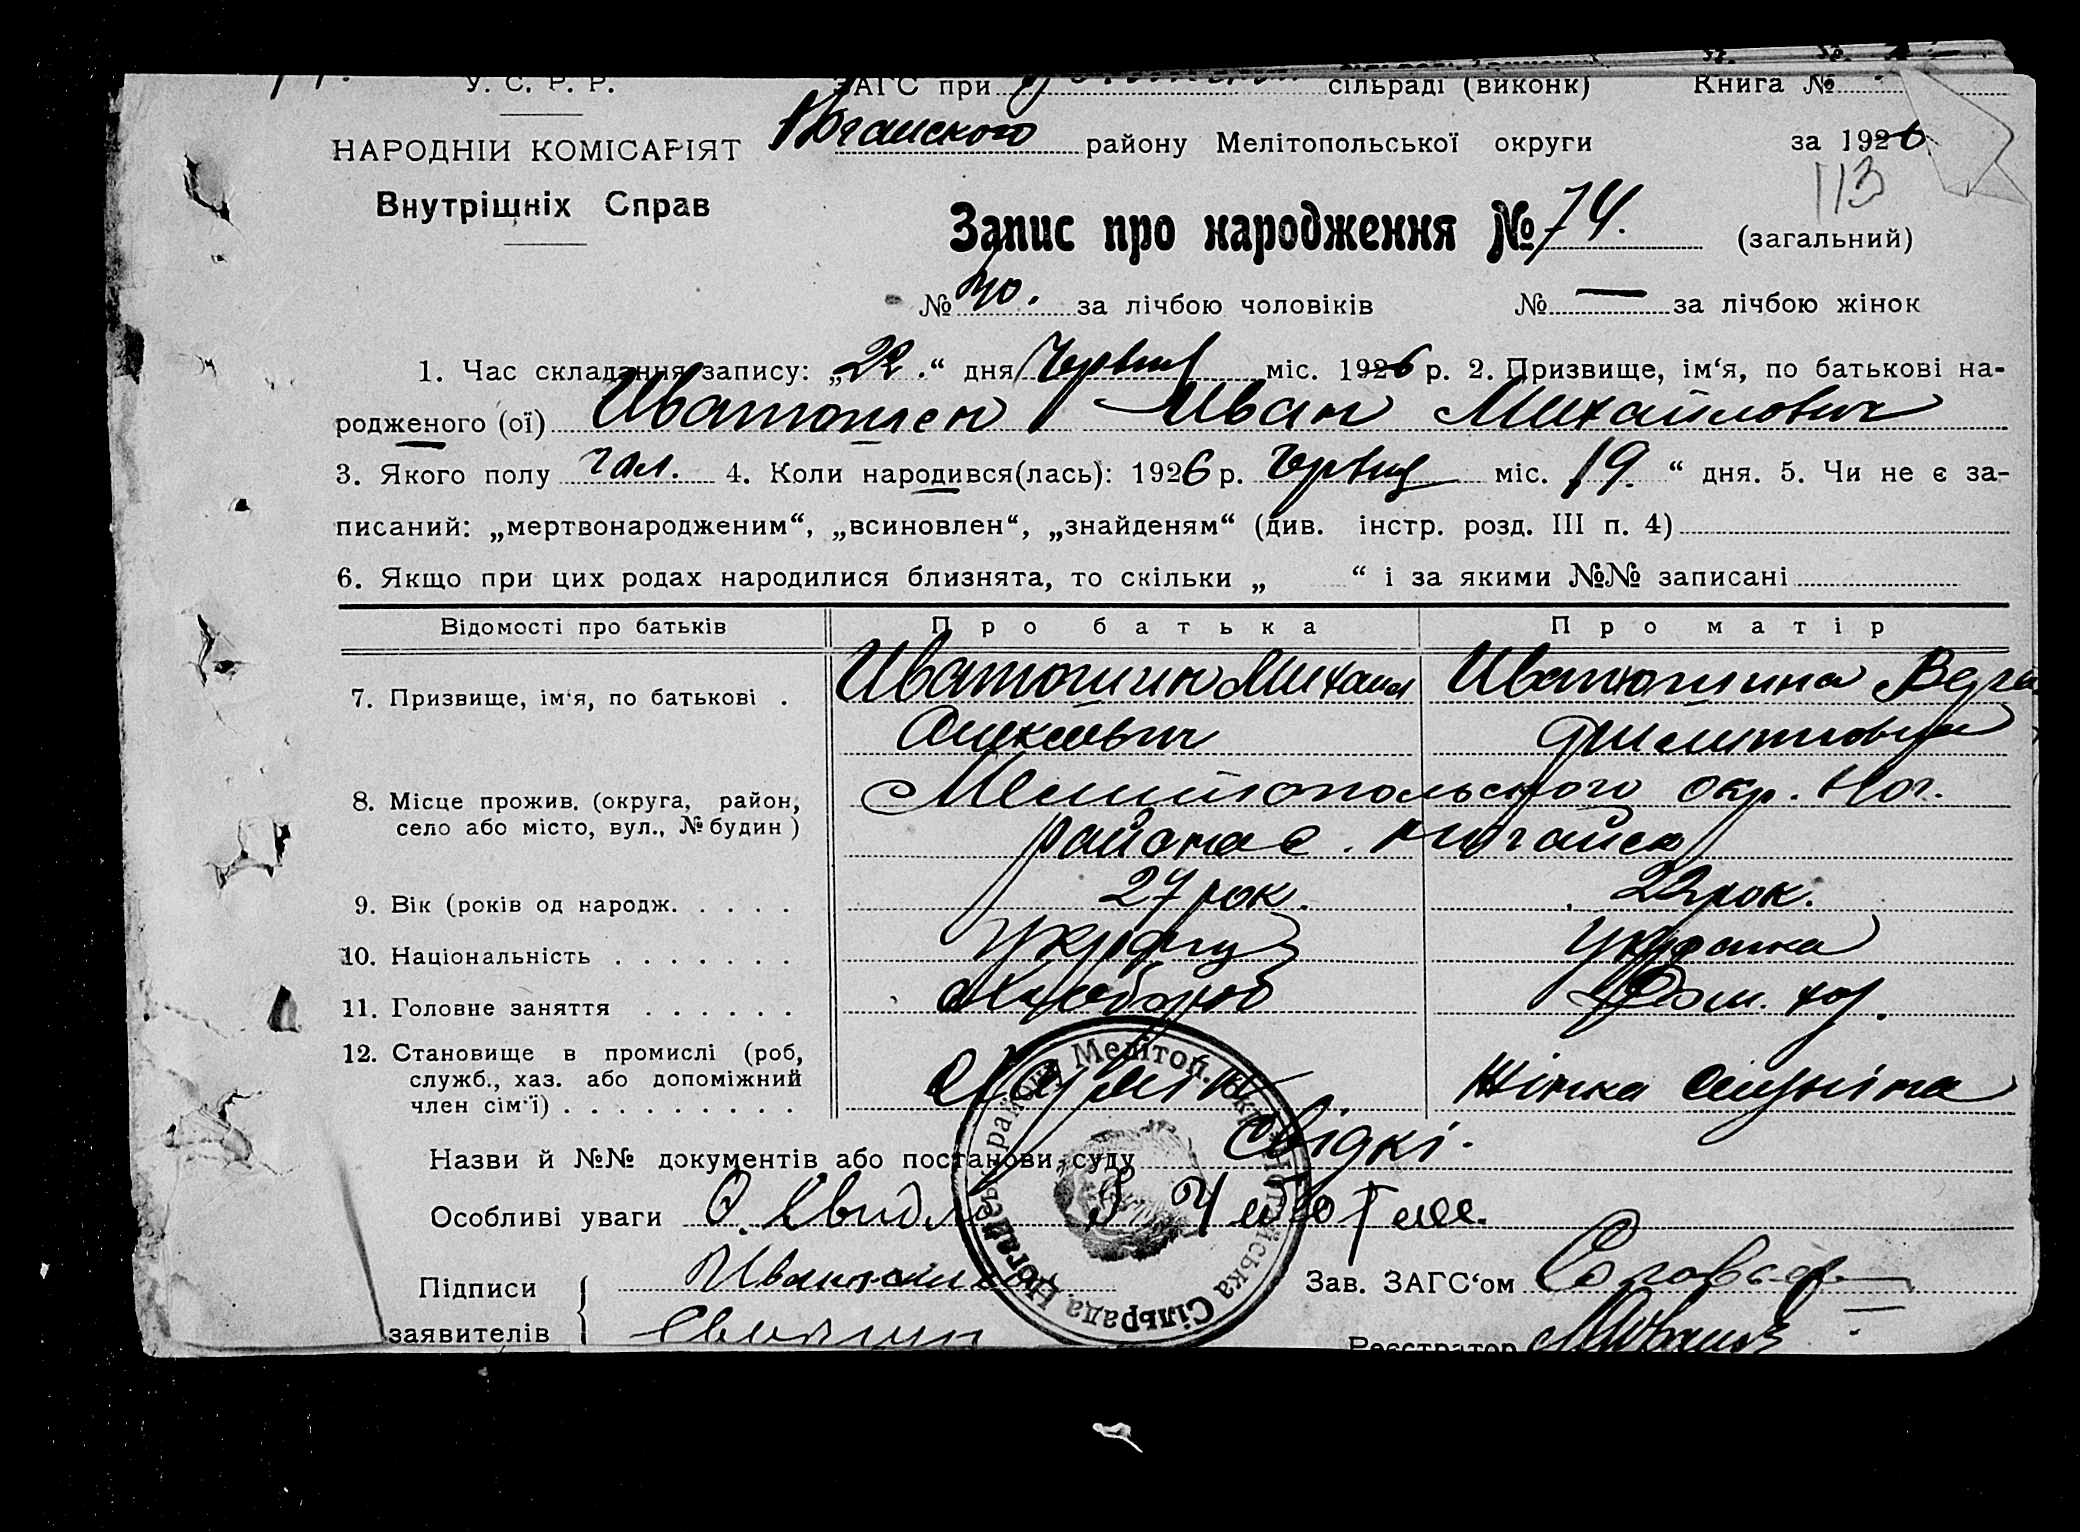 У. С. Р. Р. ЗАГС при сільраді (виконк) Книга №
Ногайского району Мелітопольської округи за 1926
НАРОДНІЙ КОМІСАРІЯТ
Внутрішніх Справ
113
Запис про народження № 74. (загальний)
№ 40. за лічбою чоловіків № — за лічбою жінок
1. Час складання запису: „22.“ дня Червня міс. 1926 р. 2. Призвище, ім‘я, по батькові на-
родженого (ої) Иватошен Иван Михайлович
3. Якого полу чол. 4. Коли народився(лась): 1926 р. Червня міс. 19. “ дня. 5. Чи не є за-
писаний: „мертвонародженим“, „всиновлен“, „знайденям“ (див. інстр. розд. III п. 4)
6. Якщо при цих родах народилися близнята, то скільки „ “ і за якими №№ записані
Відомості про батьків Про батька Про матір
7. Призвище, ім‘я, по батькові . Иватошин Михаил Иватошина Вера
Алексеевич
8. Місце прожив. (округа, район, Мелитопольського окр. Ног.
село або місто, вул., № будин ) района с. Ногайск
9. Вік (років од народж. . . . . 27 рок. 22 рок.
10. Національність . . . . . . . Українка
11. Головне заняття . . . . . . Хлебороб Дом. хоз.
12. Становище в промислі (роб,
служб., хаз. або допоміжний
член сім‘ї) . . . . . . . . . Жінка
Назви й №№ документів або постанови суду Свідкі.
Особливі уваги
Підписи Зав. ЗАГС‘ом
заявителів Реєстратор
Ногайська Сільрада Ногайськ. району Мелітоп. Окр.